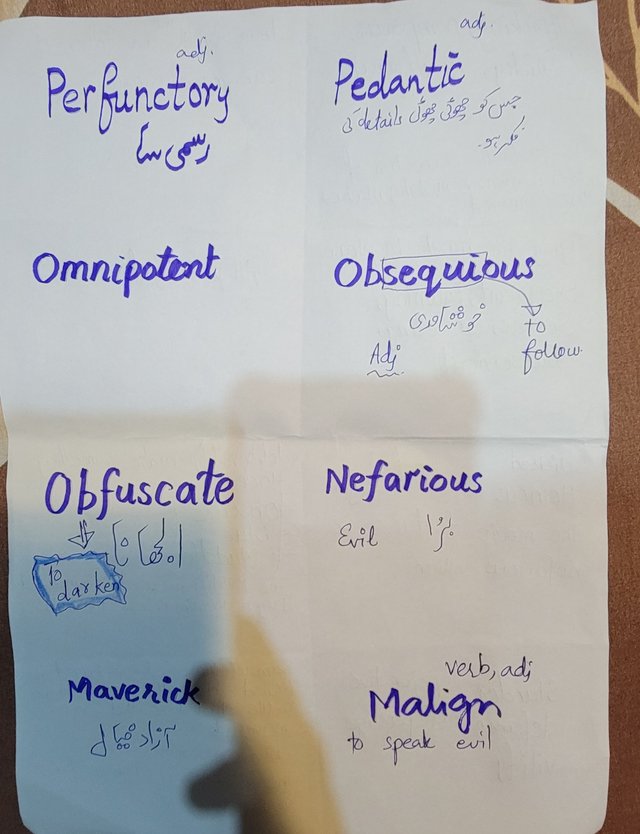 adj.
Perfunctory
رسمی سا
adj.
Pedantic
جس کو چھوٹی چھوٹی details کی
فکر ہو۔
Omnipotent
Obsequious
خوشامدی
to
follow
Adj
Obfuscate
to
darken
الجھانا
Nefarious
Evil
برا
Maverick
آزاد خیال
verb, adj
Malign
to speak evil